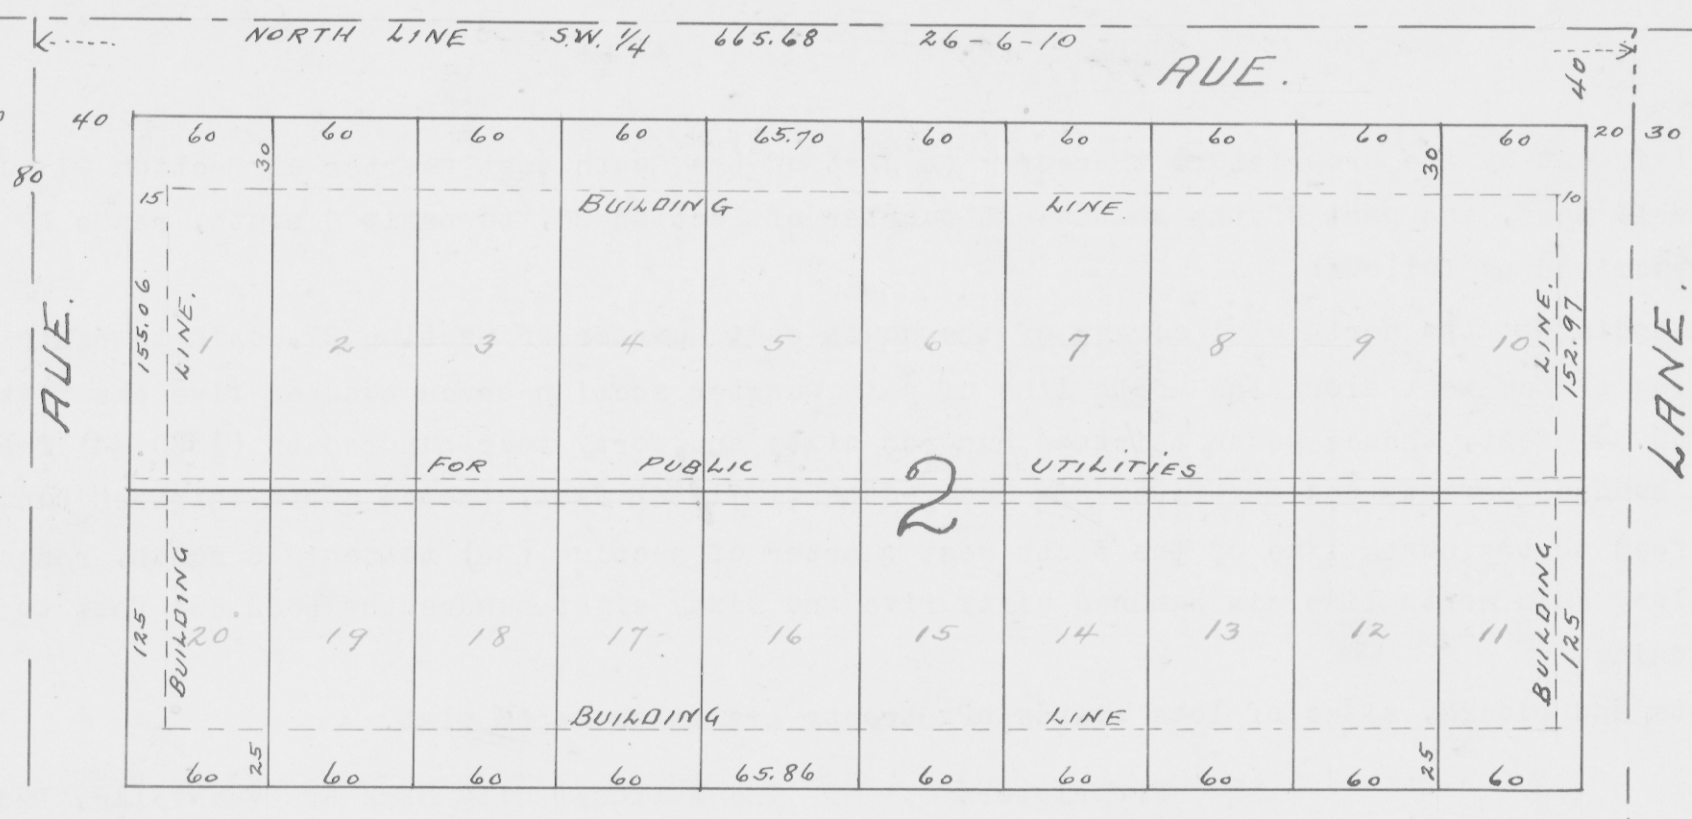 NORTH LINE S.W. 1/4 665.68 26-6-10
AUE.
40
40 60 60 60 60 65.70 60 60 60 60 60 20 30
80
30 30
15 10
BUILDING LINE
AUE.
155.06
LINE.
1 2 3 4 5 6 7 8 9 10
LINE.
152.97
LANE.
FOR PUBLIC UTILITIES
2
125
BUILDING
20 19 18 17 16 15 14 13 12 11
BUILDING
125
BUILDING LINE
25 25
60 60 60 60 65.86 60 60 60 60 60